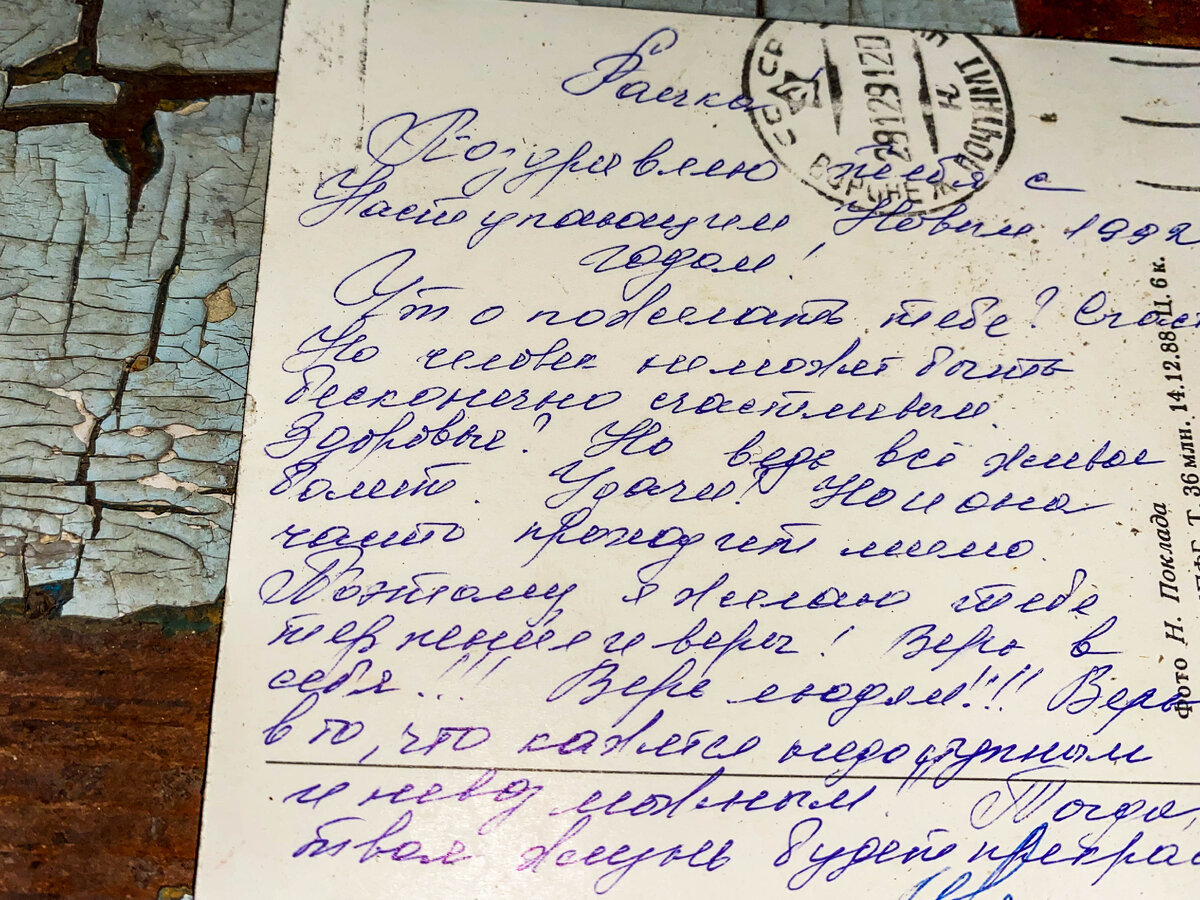 Раечка
Поздравляю тебя с
Наступающим Новым 1992
годом!
Что пожелать тебе? Счаст
Но человек не может быть
бесконечно счастливым.
Здоровье? Но ведь всё живое
болит. Удачи? Но и она
часто проходит мимо.
Поэтому я желаю тебе
терпения и веры! Верь в
себя!!! Верь людям!!!! Верь
в то, что кажется недоступным
и невозможным! Тогда,
твоя жизнь будет прекрас
СССР
ВОРОНЕЖ ПОЧТАМТ
28129120
Фото Н. Поклада
Т. 36 млн. 14.12.88. Ц. 6 к.